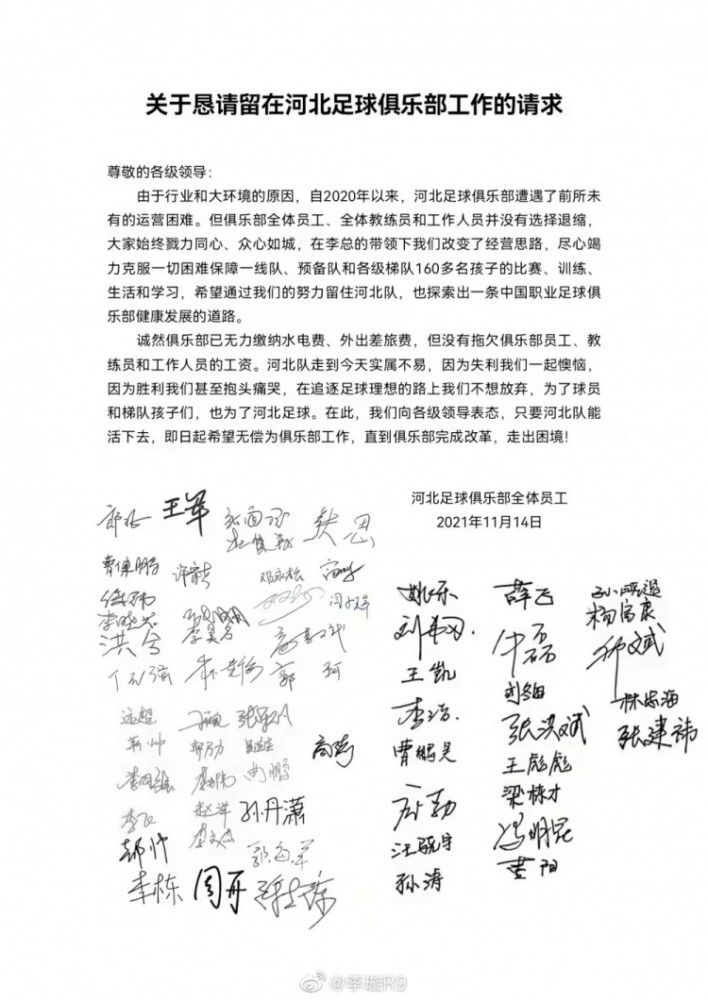 关于恳请留在河北足球俱乐部工作的请求
尊敬的各级领导：
由于行业和大环境的原因，自2020年以来，河北足球俱乐部遭遇了前所未
有的运营困难。但俱乐部全体员工、全体教练员和工作人员并没有选择退缩，
大家始终戮力同心、众心如城，在李总的带领下我们改变了经营思路，尽心竭
力克服一切困难保障一线队、预备队和各级梯队160多名孩子的比赛、训练、
生活和学习，希望通过我们的努力留住河北队，也探索出一条中国职业足球俱
乐部健康发展的道路。
诚然俱乐部已无力缴纳水电费、外出差旅费，但没有拖欠俱乐部员工、教
练员和工作人员的工资。河北队走到今天实属不易，因为失利我们一起懊恼，
因为胜利我们甚至抱头痛哭，在追逐足球理想的路上我们不想放弃，为了球员
和梯队孩子们，也为了河北足球。在此，我们向各级领导表态，只要河北队能
活下去，即日起希望无偿为俱乐部工作，直到俱乐部完成改革，走出困境！
河北足球俱乐部全体员工
2021年11月14日
王军
曹保鹏
姚乐
薛飞
杨富康
洪兮
王凯
牛磊
郭珂
李浩
张洪斌
林忠海
远超
曹鹏昊
张建祎
王彪彪
高奇
梁栋才
赵洋
孙丹潇
冯明昆
郝帅
汪晓宇
黄阳
李栋
周开
孙涛
@李璇R9